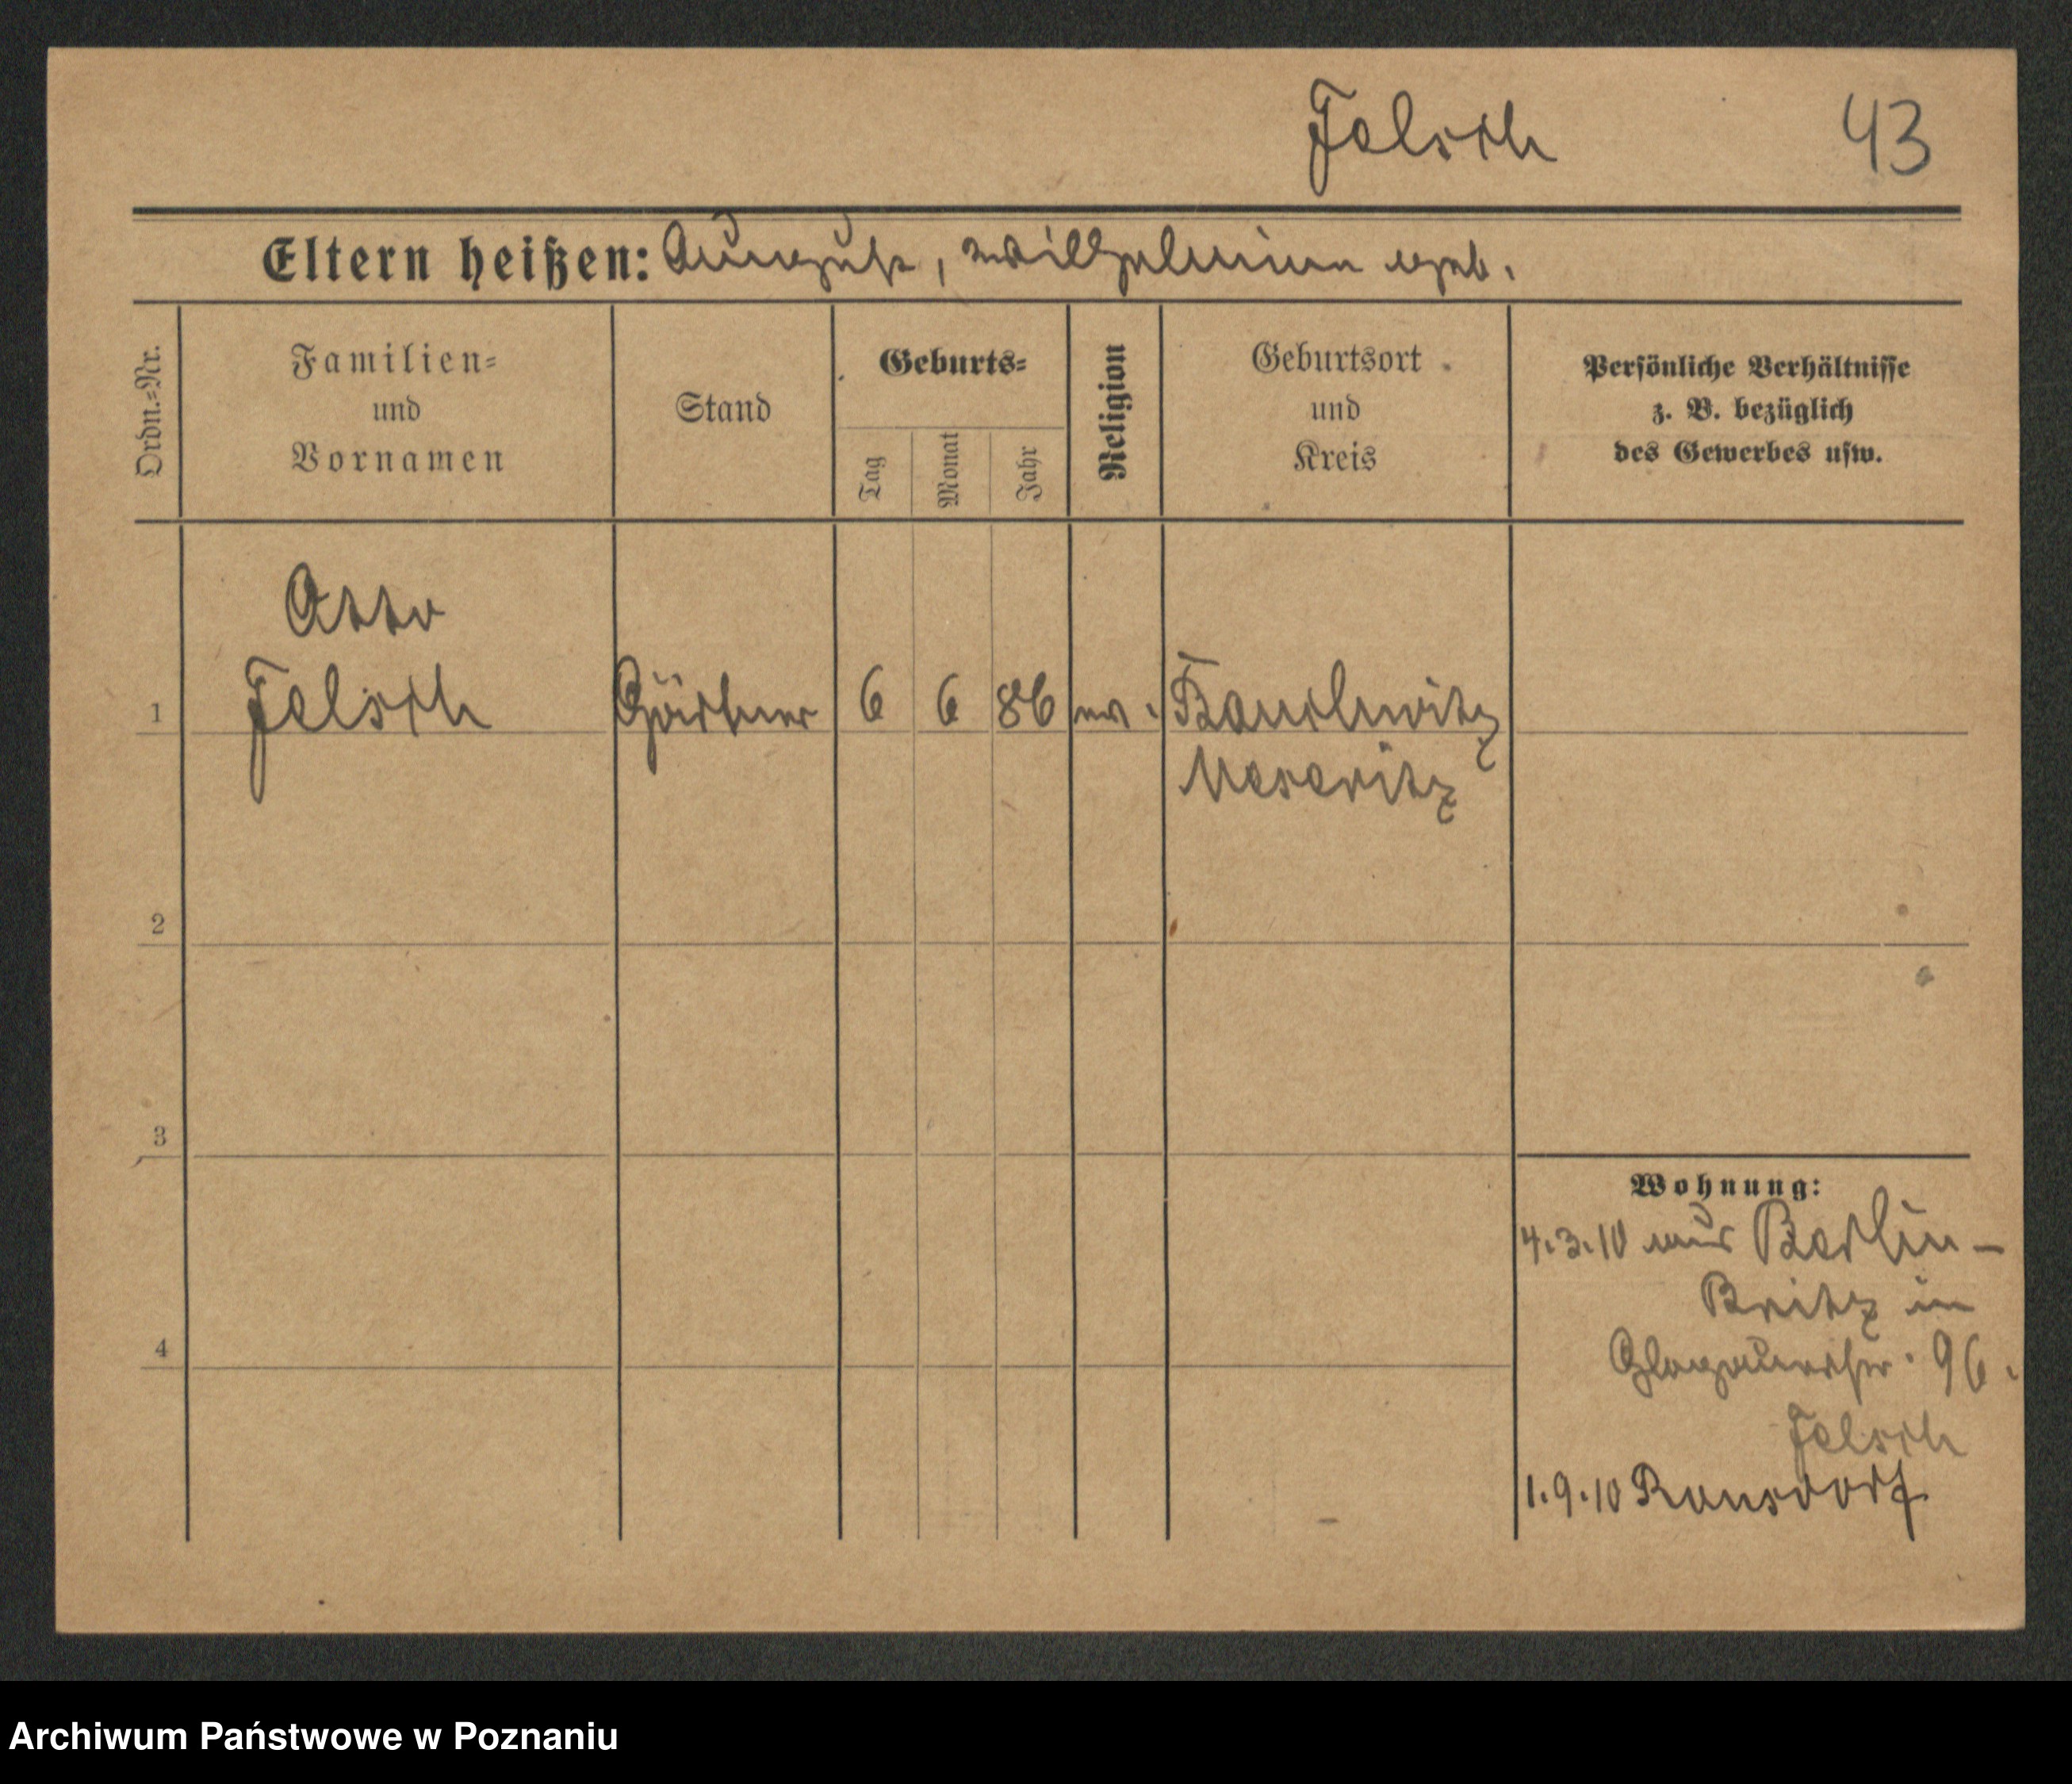 Felsch 43
Eltern heißen: August, Wilhelmine geb.
Ordn.-Nr.
Familien-
und
Vornamen
Stand
Geburts-
Tag
Monat
Jahr
Religion
Geburtsort
und
Kreis
Persönliche Verhältnisse
z. B. bezüglich
des Gewerbes usw.
Otto
1 Felsch Gärtner 6 6 86 ev. Bauchwitz
Meseritz
2
3
Wohnung:
4.3.10 aus Berlin-
Britz in
4
Glogauerstr. 96.
Felsch
1.9.10 Ronsdorf
Archiwum Państwowe w Poznaniu